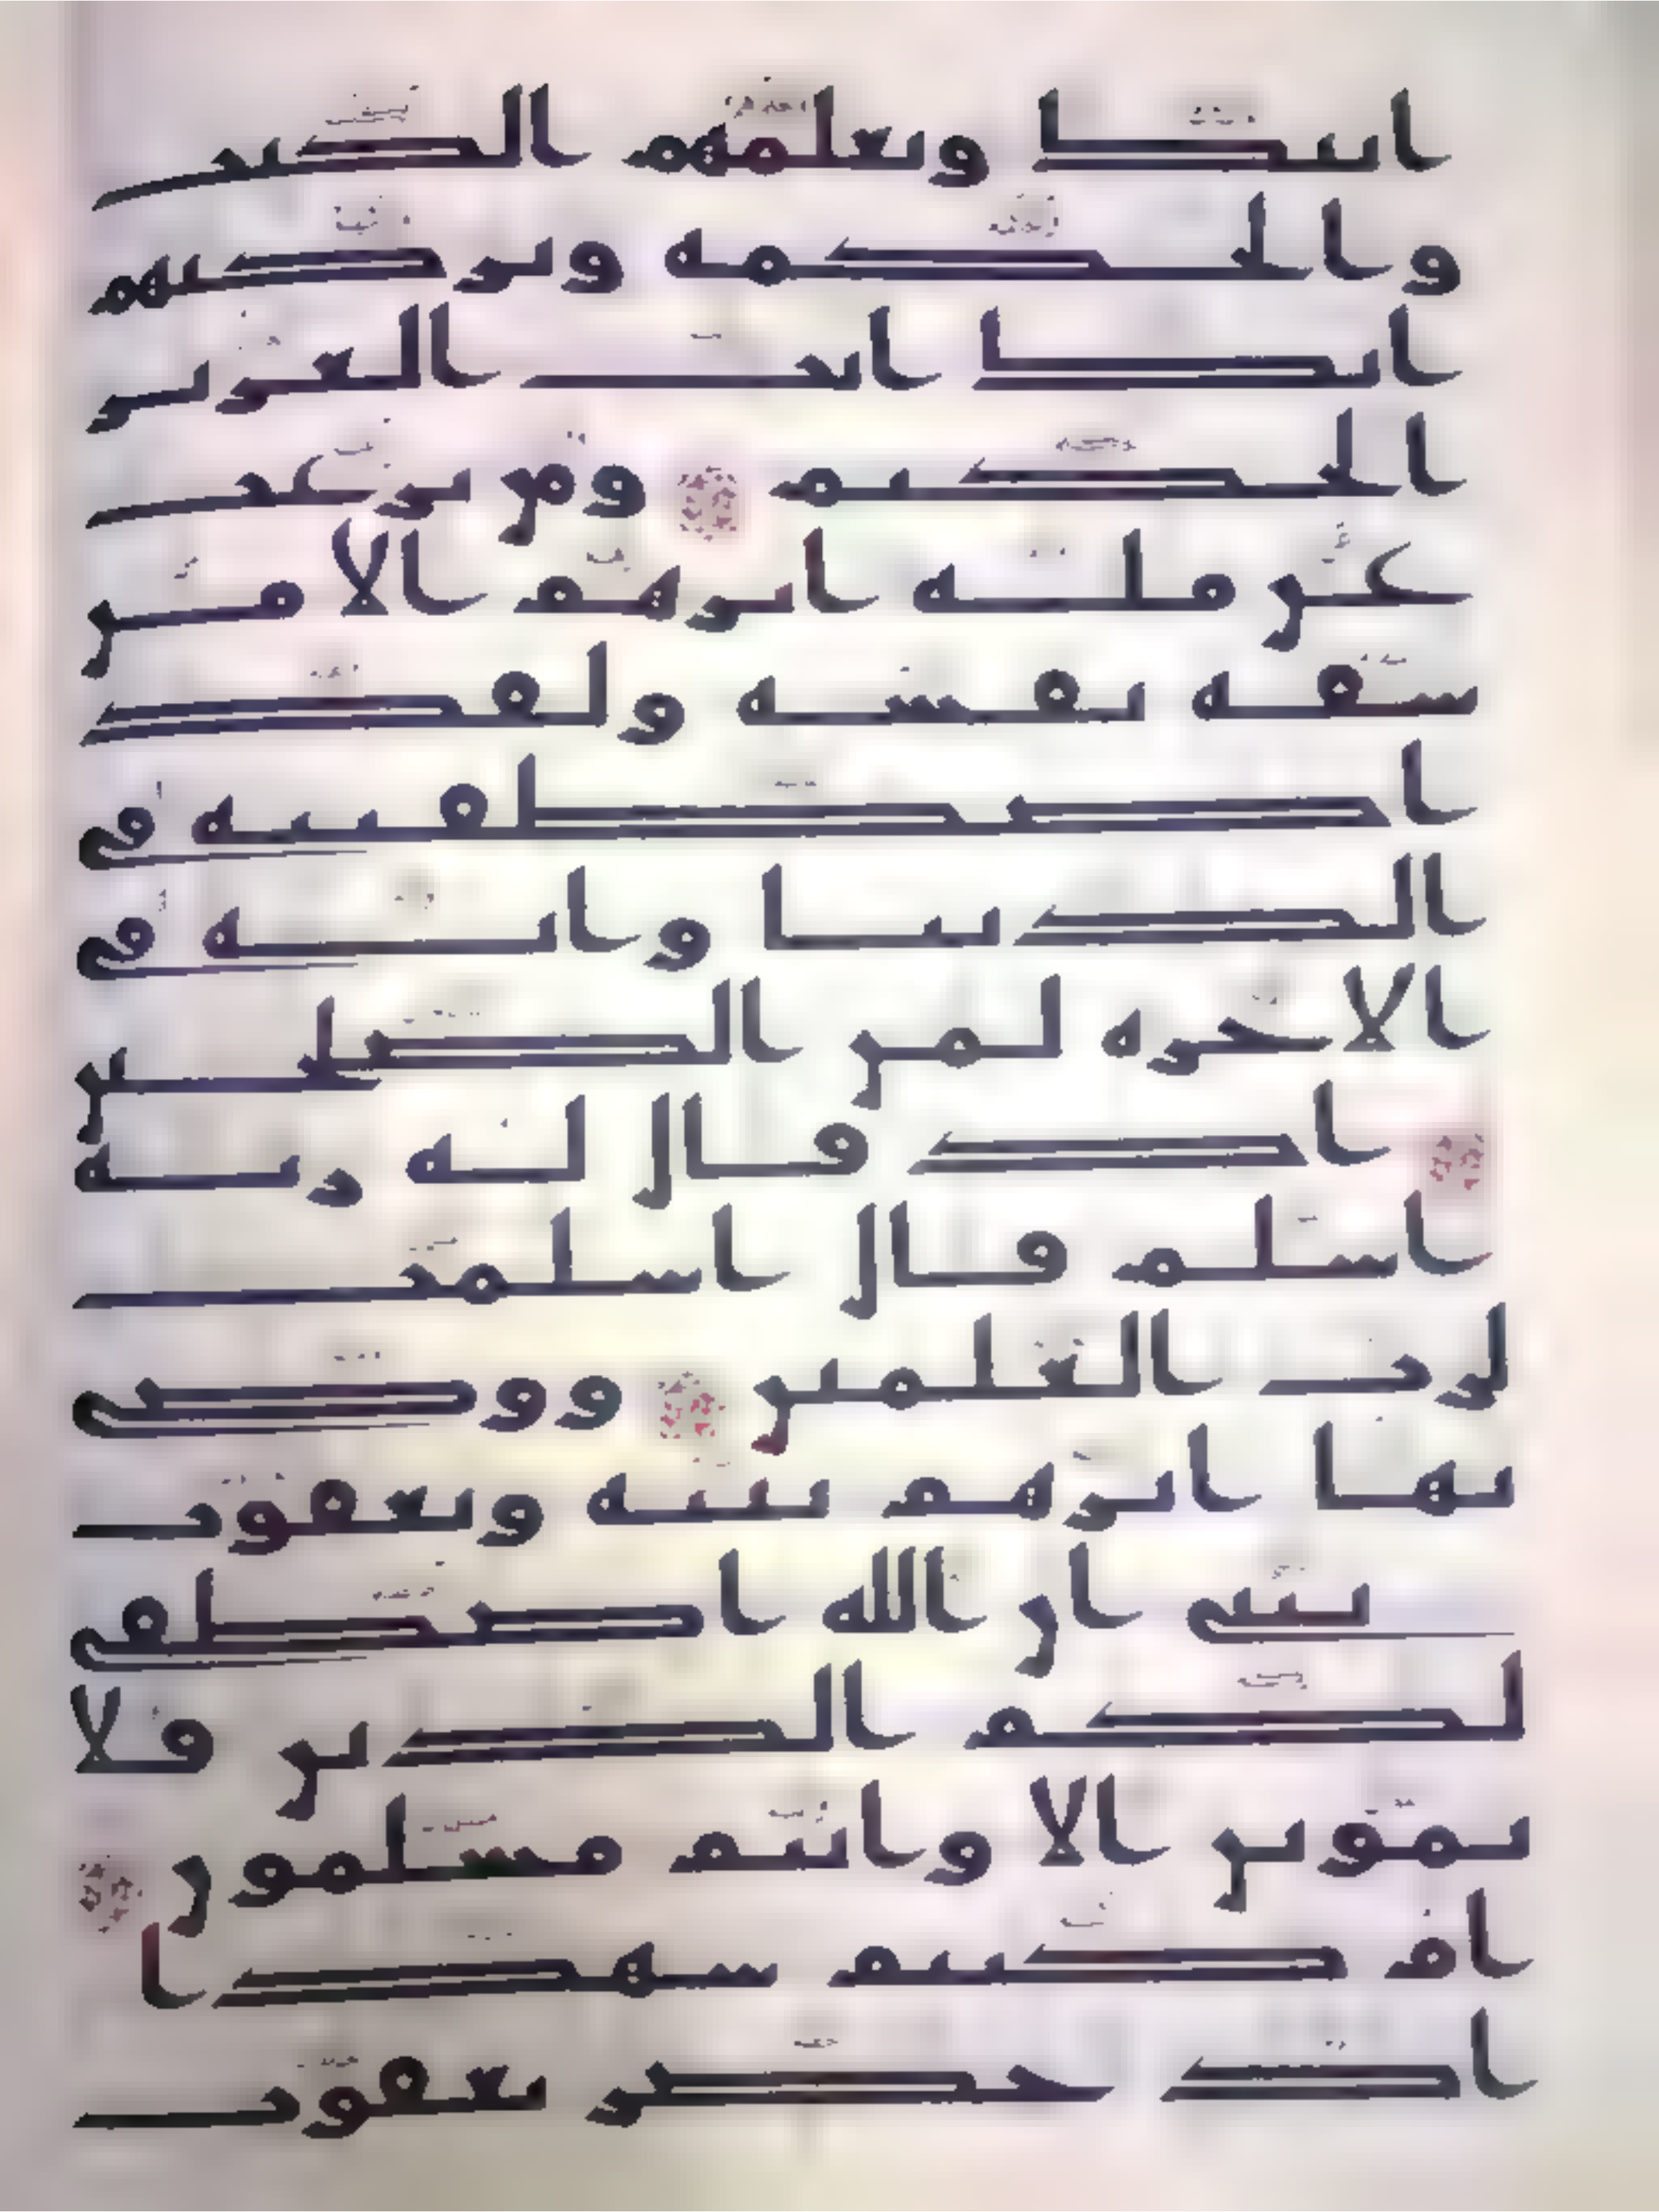 ايتك ويعلمهم الكتب
والحكمه ويزكيهم
انك انت العزيز
الحكيم ومن يرغب
عن مله ابرهم الا من
سفه نفسه ولقد
اصطفينه في
الدنيا وانه في
الاخره لمن الصلحين
اذ قال له ربه
اسلم قال اسلمت
لرب العلمين ووصى
بها ابرهم بنيه ويعقوب
يبني ان الله اصطفى
لكم الدين فلا
تموتن الا وانتم مسلمون
ام كنتم شهدا
اذ حضر يعقوب